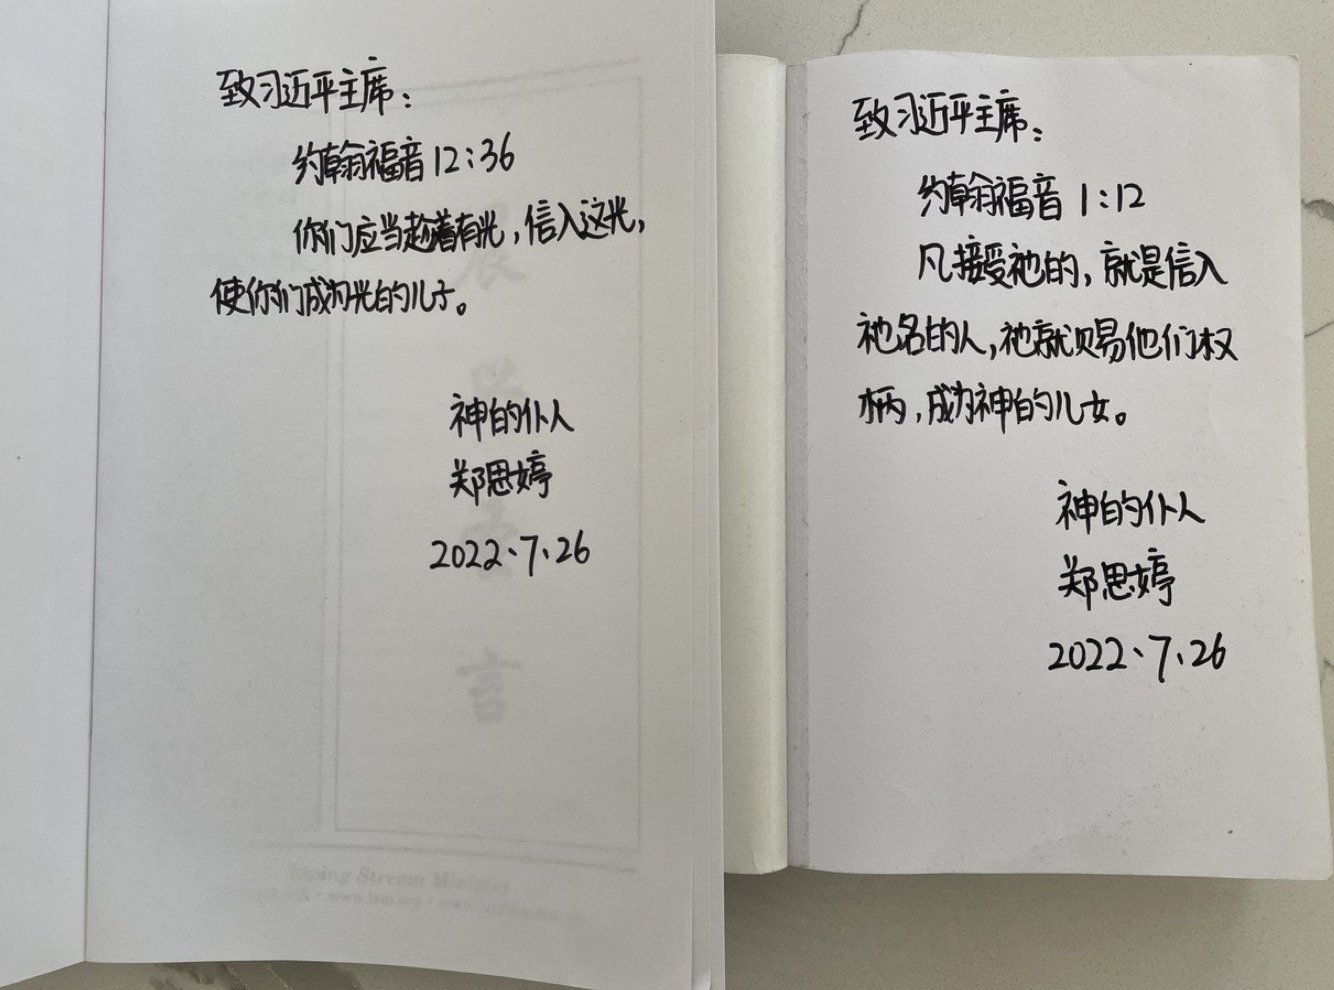 致习近平主席：
约翰福音12:36
你们应当趁着有光，信入这光，
使你们成为光的儿子。
神的仆人
郑思婷
2022、7、26
致习近平主席：
约翰福音 1:12
凡接受祂的，就是信入
祂名的人，祂就赐他们权
柄，成为神的儿女。
神的仆人
郑思婷
2022、7、26